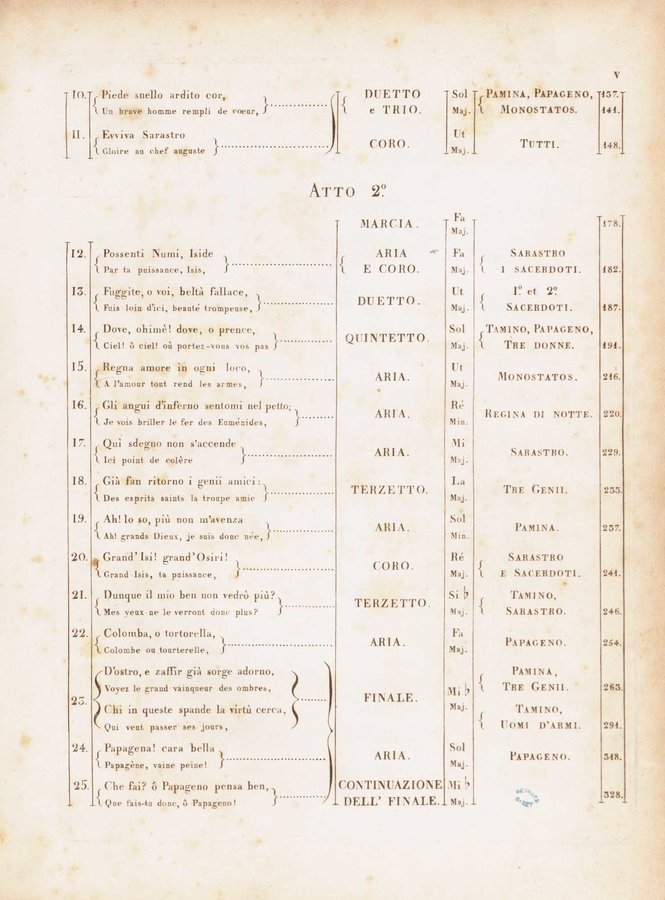 V
10. Piede snello ardito cor, DUETTO Sol PAMINA, PAPAGENO, 137.
Un brave homme rempli de coeur, e TRIO. Maj. MONOSTATOS. 141.
11. Evviva Sarastro CORO. Ut TUTTI. 148.
Gloire au chef auguste Maj.
ATTO 2º
MARCIA. Fa 178.
Maj.
12. Possenti Numi, Iside ARIA Fa SARASTRO
Par ta puissance, Isis, E CORO. Maj. I SACERDOTI. 182.
13. Fuggite, o voi, beltà fallace, DUETTO. Ut 1º et 2º
Fuis loin d'ici, beauté trompeuse, Maj. SACERDOTI. 187.
14. Dove, ohimè! dove, o prence, QUINTETTO. Sol TAMINO, PAPAGENO,
Ciel! ô ciel! où portez-vous vos pas Maj. TRE DONNE. 191.
15. Regna amore in ogni loco, ARIA. Ut MONOSTATOS. 216.
A l'amour tout rend les armes, Maj.
16. Gli angui d'inferno sentomi nel petto; ARIA. Ré REGINA DI NOTTE. 220.
Je vois briller le fer des Euménides, Min.
17. Qui sdegno non s'accende ARIA. Mi SARASTRO. 229.
Ici point de colère Maj.
18. Già fan ritorno i genii amici: TERZETTO. La TRE GENII. 233.
Des esprits saints la troupe amie Maj.
19. Ah! lo so, più non m'avenza ARIA. Sol PAMINA. 237.
Ah! grands Dieux, je suis donc née, Min.
20. Grand' Isi! grand'Osiri! CORO. Ré SARASTRO
Grand Isis, ta puissance, Maj. E SACERDOTI. 241.
21. Dunque il mio ben non vedrò più? TERZETTO. Si ♭ TAMINO,
Mes yeux ne le verront donc plus? Maj. SARASTRO. 246.
22. Colomba, o tortorella, ARIA. Fa PAPAGENO. 254.
Colombe ou tourterelle, Maj.
23. D'ostro, e zaffir già sorge adorno, FINALE. Mi ♭ PAMINA,
Voyez le grand vainqueur des ombres, Maj. TRE GENII. 263.
Chi in queste spande la virtù cerca, TAMINO,
Qui veut passer ses jours, UOMI D'ARMI. 291.
24. Papagena! cara bella ARIA. Sol PAPAGENO. 318.
Papagène, vaine peine! Maj.
25. Che fai? ô Papageno pensa ben, CONTINUAZIONE Mi ♭ 328.
Que fais-tu donc, ô Papageno! DELL' FINALE. Maj.